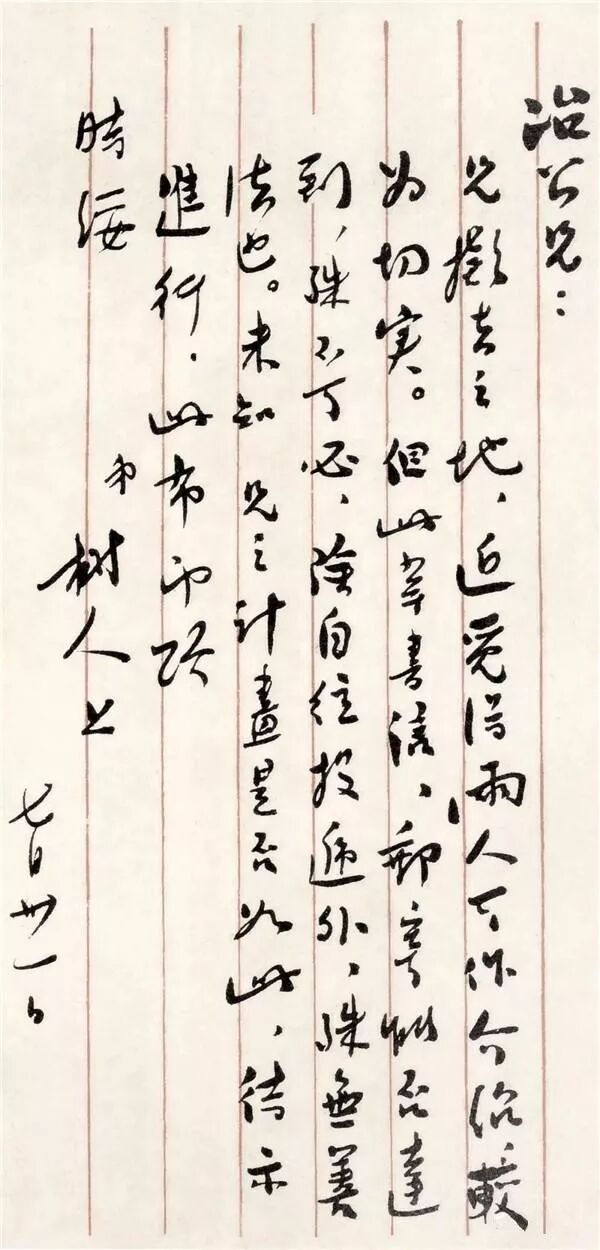 冶公兄：
兄擬去之地，近覓得兩人可作介紹，較
为切实。但此等書信，郵寄能否達
到，殊不可必，除自往投遞外，殊無善
法也。未知 兄之計畫是否如此，待示
進行，此布即頌
時綏
弟樹人上
七月卅一日